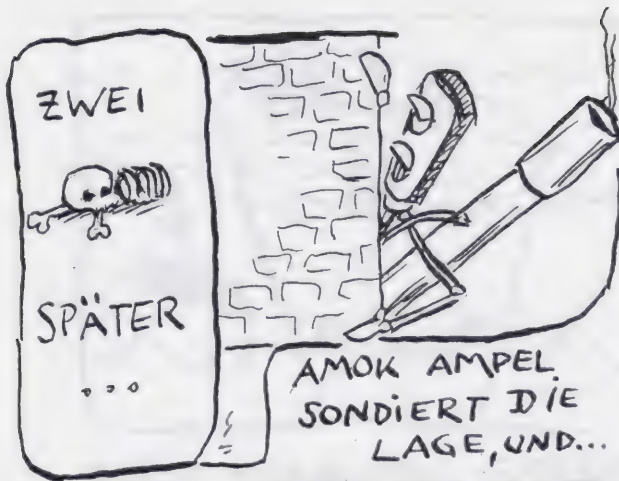 ZWEI
SPÄTER
...
AMOK AMPEL
SONDIERT DIE
LAGE, UND...